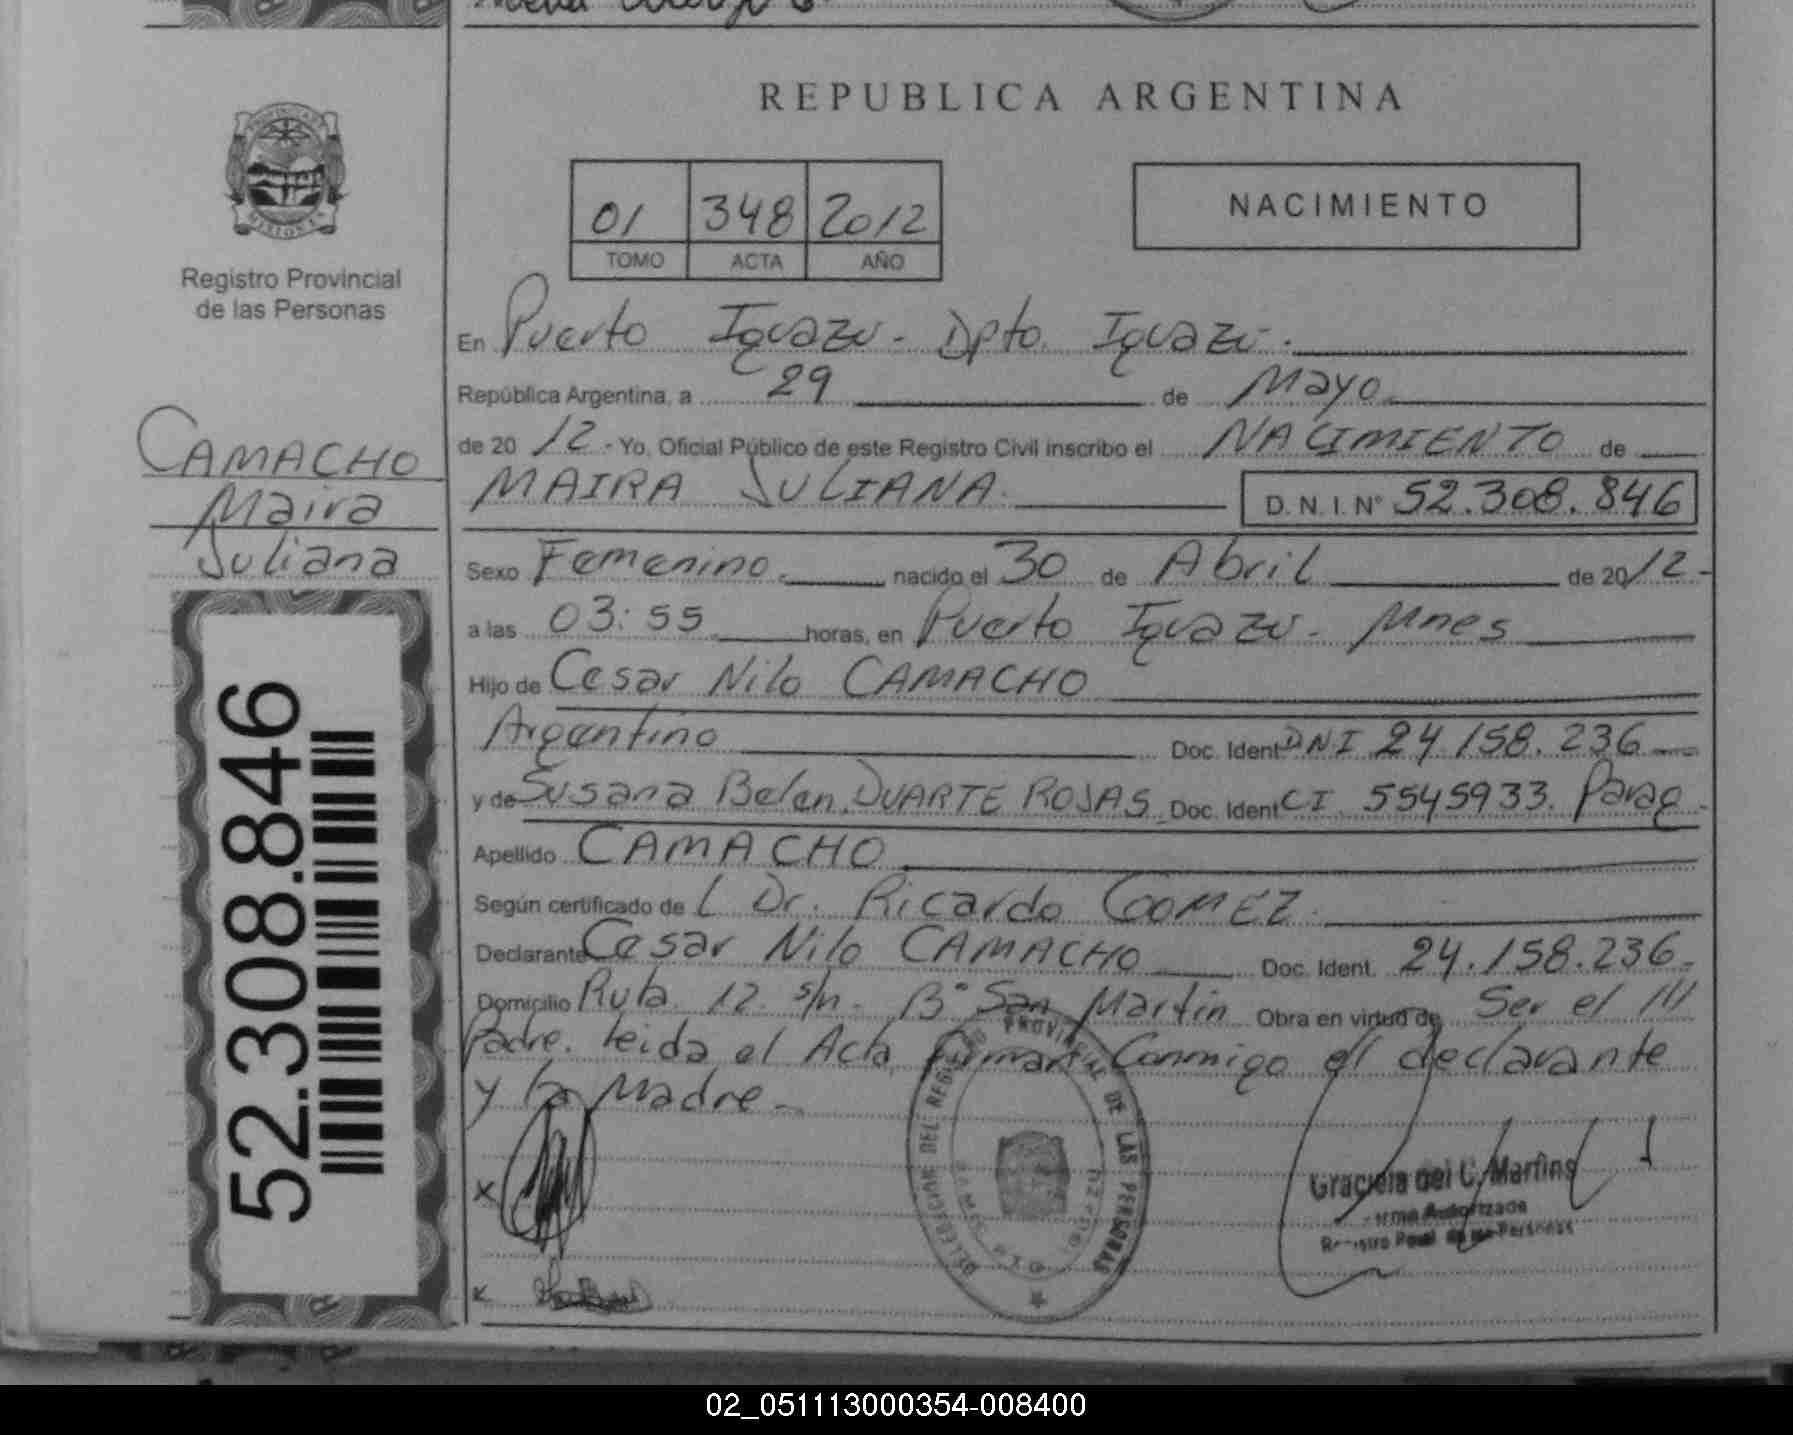 REPUBLICA ARGENTINA
01 348 2012
TOMO ACTA AÑO
NACIMIENTO
Registro Provincial
de las Personas
CAMACHO
Maira
Juliana
52.308.846
En Puerto Iguazú - Dpto. Iguazú.
República Argentina, a 29 de Mayo
de 20 12 - Yo, Oficial Público de este Registro Civil inscribo el NACIMIENTO de
MAIRA JULIANA D. N. I. N° 52.308.846
Sexo Femenino nacido el 30 de Abril de 20 12 -
a las 03:55 horas, en Puerto Iguazú - Mnes
Hijo de Cesar Nilo CAMACHO
Argentino Doc. Ident DNI 24.158.236
y de Susana Belen DUARTE ROJAS Doc. Ident CI 5545933. Parag -
Apellido CAMACHO
Según certificado de L Dr. Ricardo GOMEZ
Declarante Cesar Nilo CAMACHO Doc. Ident. 24.158.236 -
Domicilio Ruta 12 s/n - B° San Martín Obra en virtud de Ser el ///
Padre. leida el Acta, firman Conmigo el declarante
y la Madre -
x
DELEGACION DEL REGISTRO PROVINCIAL DE LAS PERSONAS
Graciela del C. Martins
Firma Autorizada
Registro Pcial. de las Personas
02_051113000354-008400